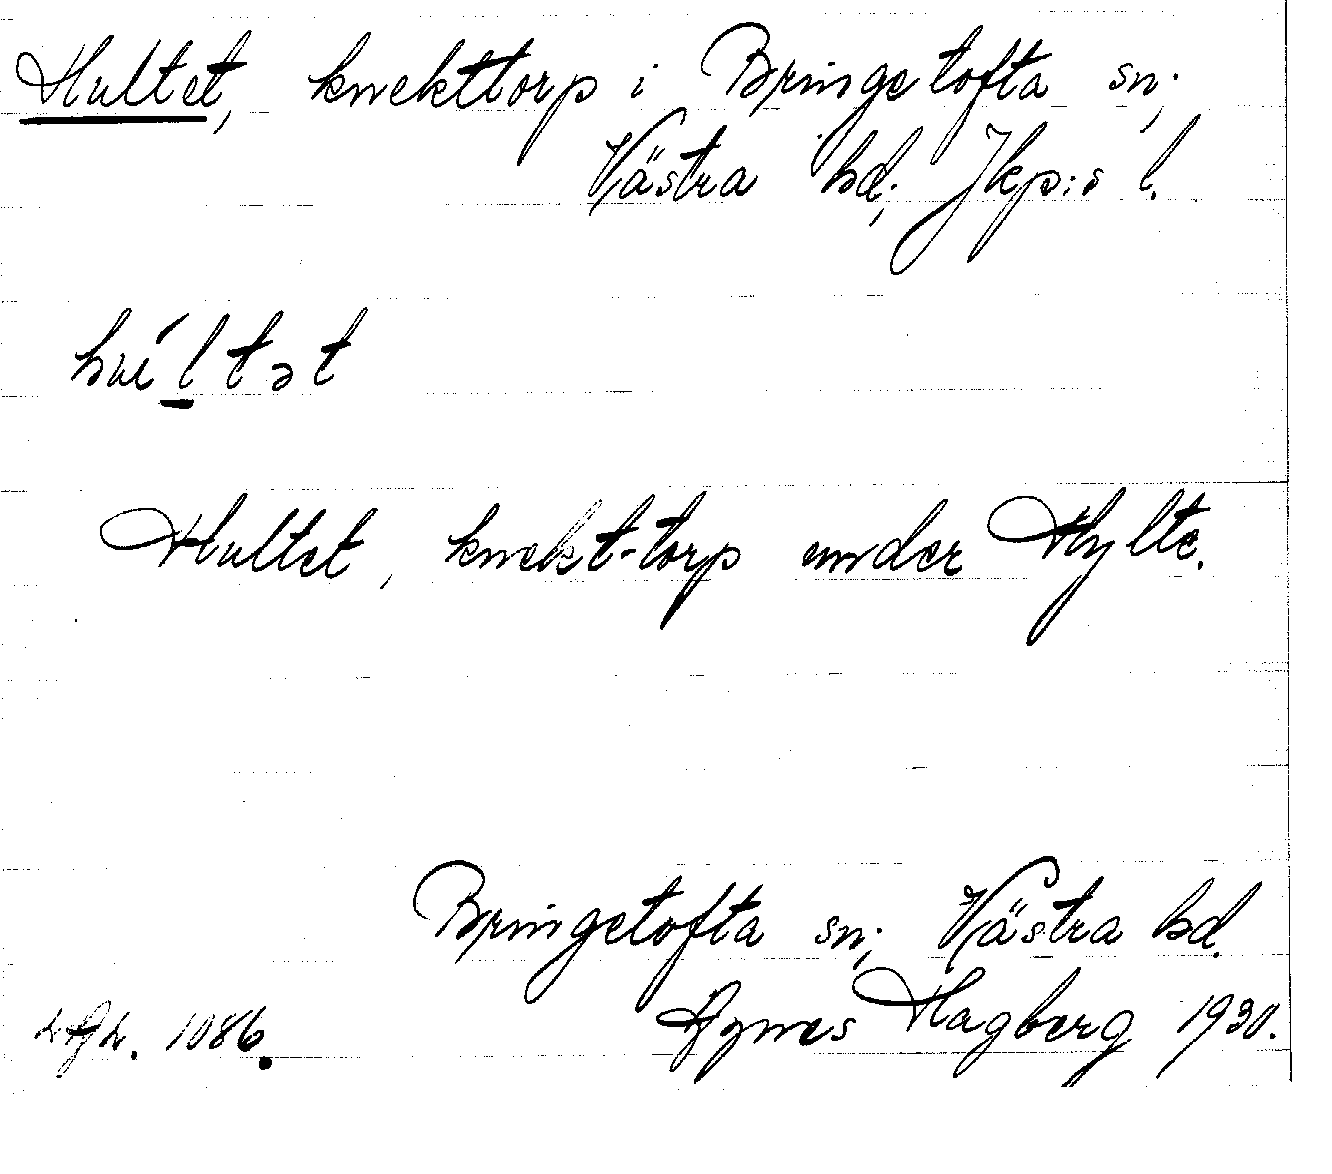 Hultet, knekttorp i Bringetofta sn;
Västra hd; Jkp:s l.
húltət
Hultet, knekt-torp under Hylte.
Bringetofta sn; Västra hd.
Agnes Hagberg 1930.
1086.